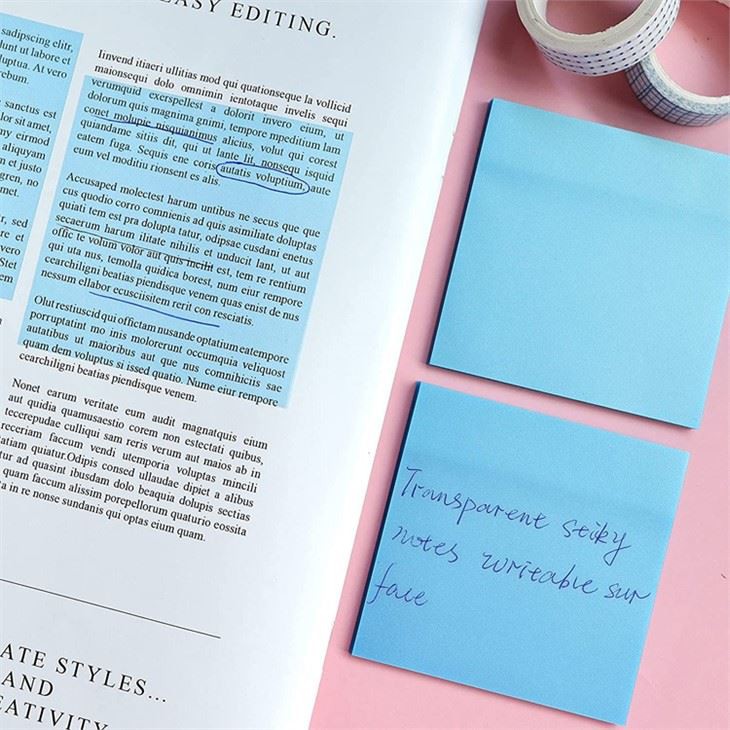 EASY EDITING.
sadipscing elitr,
dunt ut labore et
luptua. At vero
rebum.
sanctus est
lor sit amet,
my eirmod
aliquyam
et justo
gren, no
met.
r, sed
re et
vero
Stet
em
Iinvend itiaeri ullitias mod qui quationseque la vollicid
maionsequi dolo omnimin ientotaque invelis sequi
verumquid exerspellest a dolorit invero eium, ut
dolorum quis magnima gnimi, tempore mpeditium lam
conet molupie nisquianimus alicius, volut qui corest
quiandame sitiis dit, qui ut lante lit, nonsequ isquid
eatem fuga. Sequis ene coris autatis voluptium, aute
eum vel moditiu rionsent es alis.
Accusaped molectest harum untibus ne secus que que
cus quodio corro comnienis ad quis asimiliate doluptas
quiati tem est pra dolupta tatur, odipsae cusdani enetus
secaerum harum ilitate nihilis et unducit lant, ut aut
offic te volum volor aut quis incihit est, tem re rentium
qui uta nus, temolla quidica borest, num eiur rempore
cearchiligni beatias piendisque venem quas enist de nus
nessum ellabor ecusciisitem rerit con resciatis.
Olut restiuscid qui offictam nusande optatium eatempore
porruptatint mo inis molorerunt occumquia veliquost
autatibus ut maioribus aut que nus comnihiciis sae
quam dem voluptus si issed quatio. Nume eiur rempore
cearchiligni beatias piendisque venem.
Nonet earum veritate eum audit magnatquis eium
aut quidia quamusaestio corem non estectati quibus,
tecerepudae culliqui sam reris verum aut maios ab in
receriam faccum vendi utemporia voluptas mincili
tatiam quiatur.Odipis consed ullaudae dipiet a alibus
tur ad quasint ibusdam dolo beaquia dolupis sectias
quam faccum alissim porepellorum quaturio eossita
ta in re nonse sundanis qui optas eium quam.
ATE STYLES...
AND
EATIVITY
Transparent stiky
notes writable sur
face